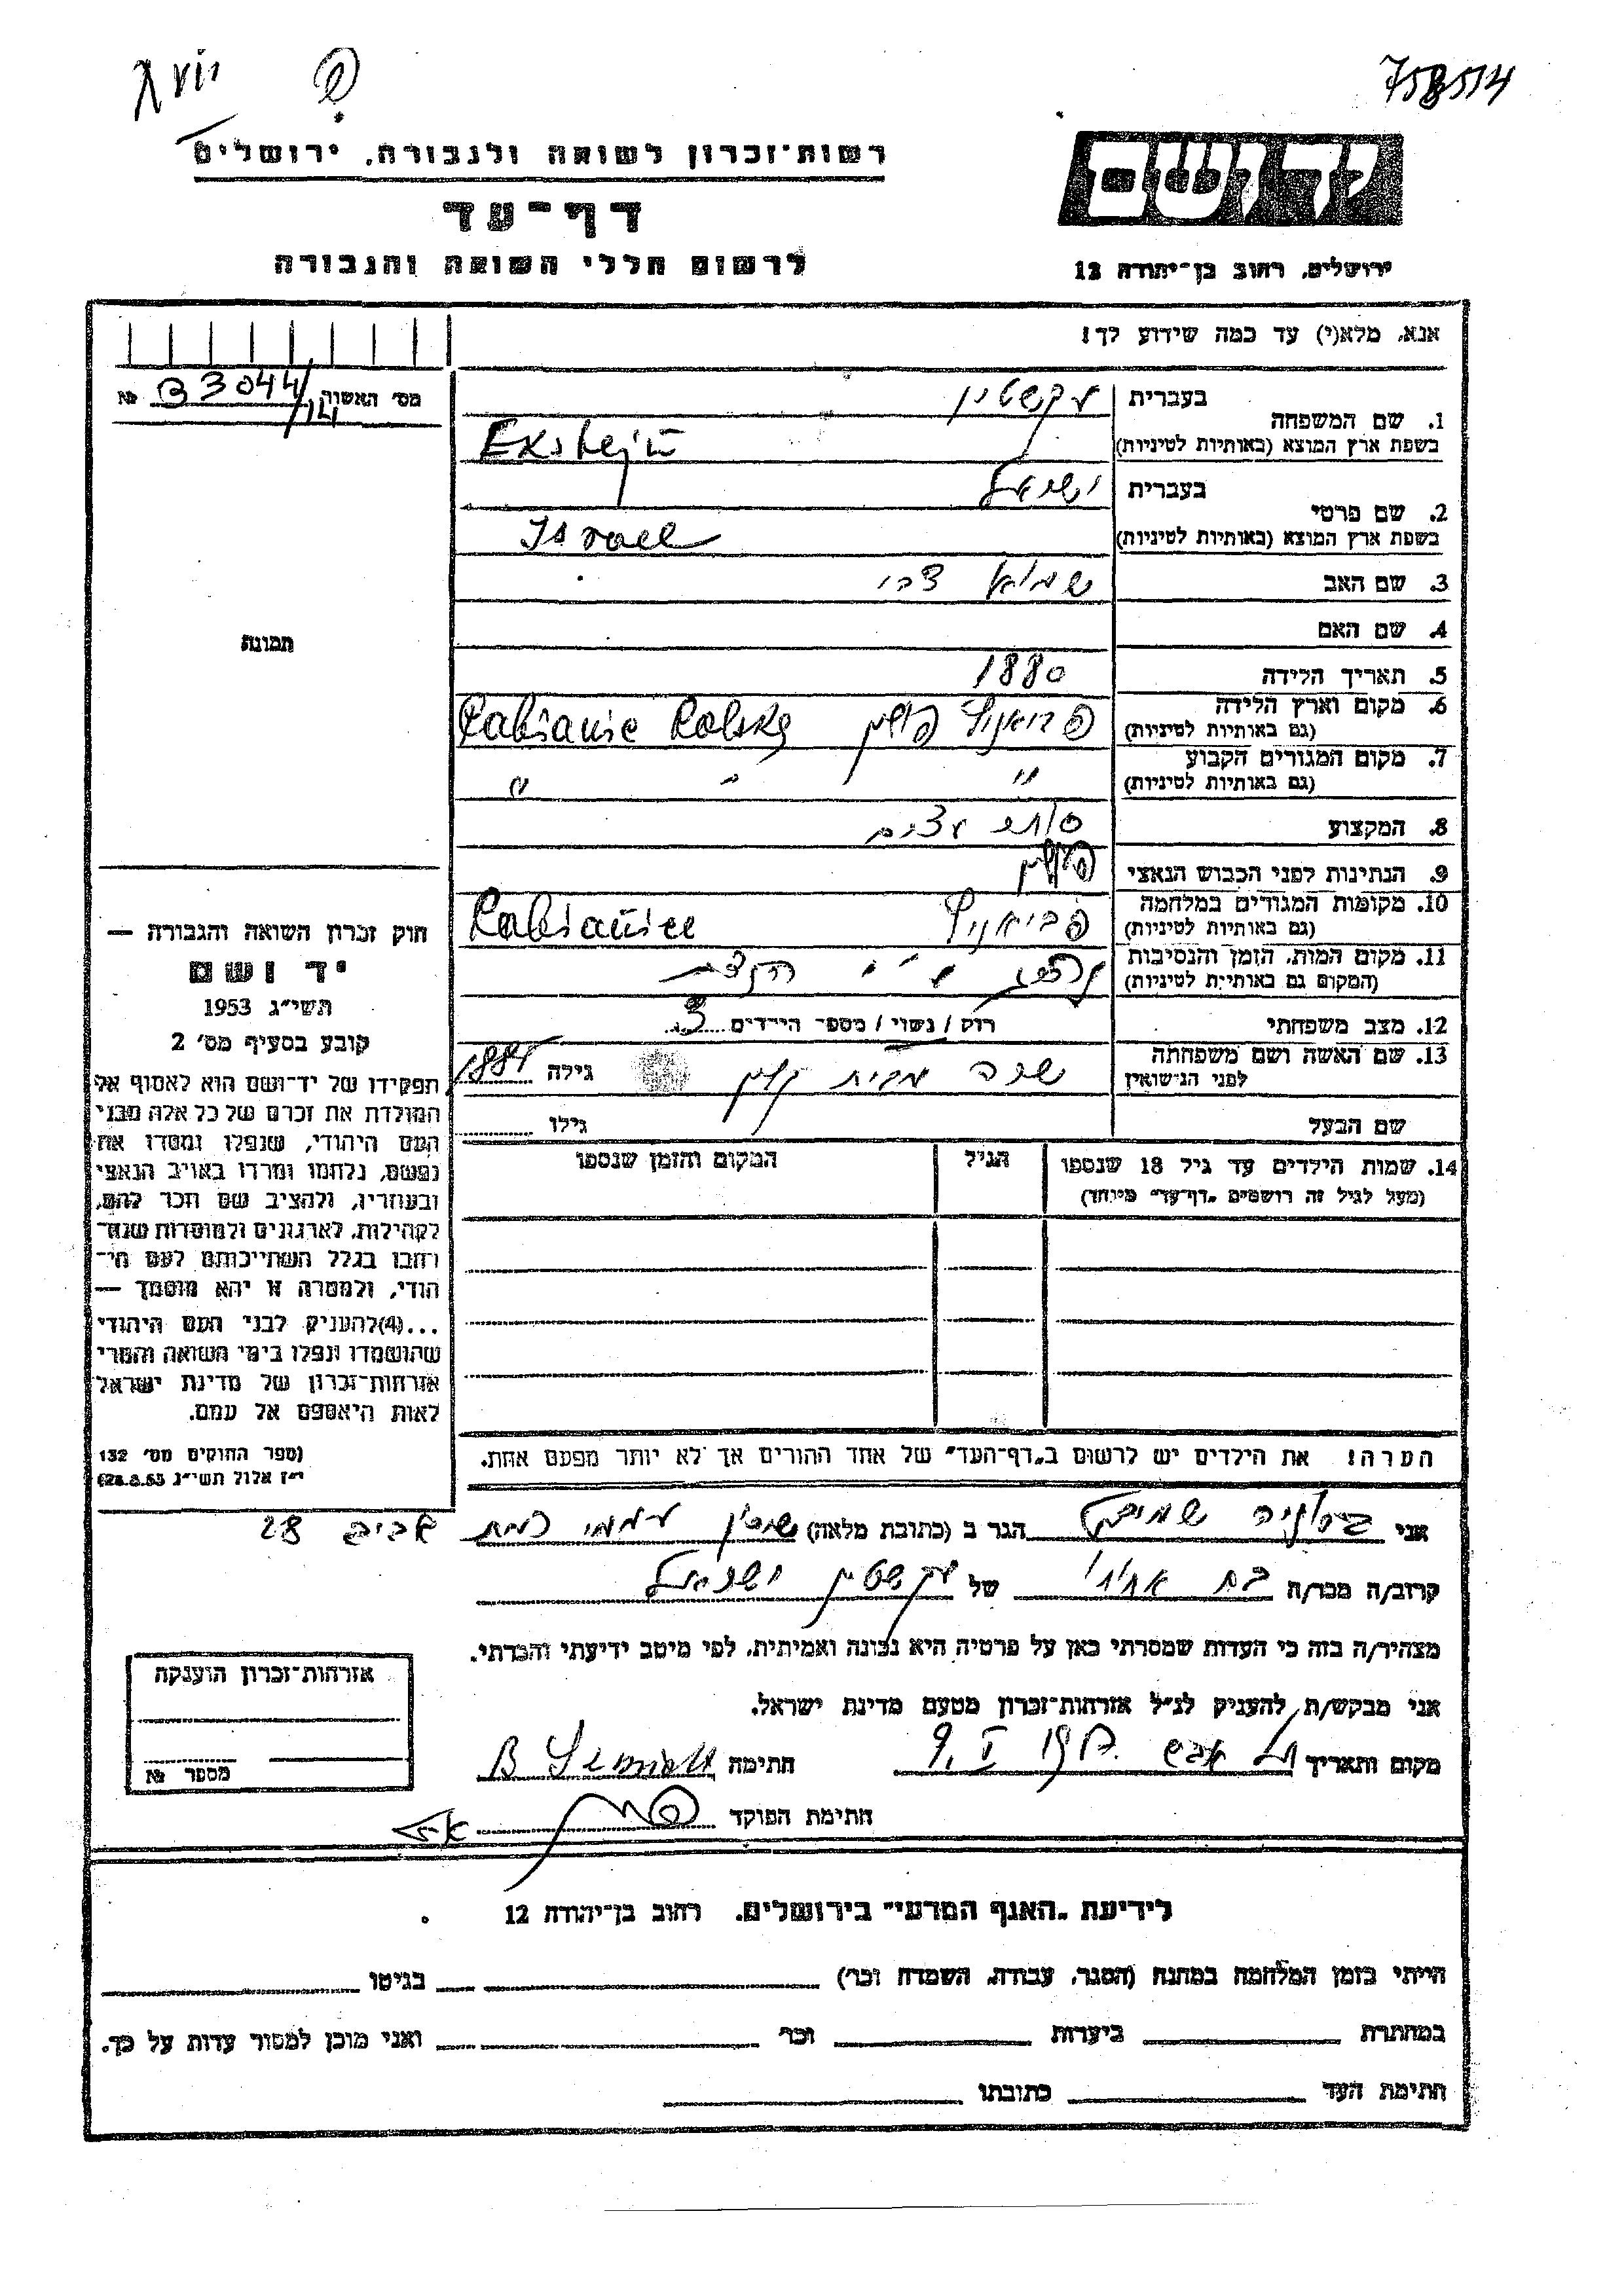 758514
רשות־זכרון לשואה ולגבורה, ירושלים
יד ושם
דף־עד
לרשום חללי השואה והגבורה
ירושלים, רחוב בן־יהודה 12
אנא, מלא(י) עד כמה שידוע לך!
מס' האשור B3044/14 №
בעברית עקשטין
1. שם המשפחה
בשפת ארץ המוצא (באותיות לטיניות) Ekstejn
בעברית ישראל
2. שם פרטי
בשפת ארץ המוצא (באותיות לטיניות) Israel
3. שם האב
4. שם האם
תמונה
5. תאריך הלידה 1880
6. מקום וארץ הלידה
(גם באותיות לטיניות) פביאניץ פולין Pabianie Polska
7. מקום המגורים הקבוע " " "
(גם באותיות לטיניות)
8. המקצוע סוחר עצים
9. הנתינות לפני הכבוש הנאצי פולין
10. מקומות המגורים במלחמה
(גם באותיות לטיניות) פביאניץ Pabianice
11. מקום המות, הזמן והנסיבות
(המקום גם באותיות לטיניות)
12. מצב משפחתי רוק / נשוי / מספר הילדים 3
13. שם האשה ושם משפחתה
לפני הנישואין שרה מבית גילה
שם הבעל גילו
14. שמות הילדים עד גיל 18 שנספו הגיל המקום והזמן שנספו
(מעל לגיל זה רושמים „דף־עד” מיוחד)
חוק זכרון השואה והגבורה —
יד ושם
תשי"ג 1953
קובע בסעיף מס' 2
תפקידו של יד־ושם הוא לאסוף אל
המולדת את זכרם של כל אלה מבני
העם היהודי, שנפלו ומסרו את
נפשם, נלחמו ומרדו באויב הנאצי
ובעוזריו, ולהציב שם וזכר להם,
לקהילות, לארגונים ולמוסדות שנח־
רבו בגלל השתייכותם לעם הי־
הודי, ולמטרה זו יהא מוסמך —
...(4)להעניק לבני העם היהודי
שהושמדו ונפלו בימי השואה והמרי
אזרחות־זכרון של מדינת ישראל
לאות היאספם אל עמם.
(ספר החוקים מס' 132
י"ז אלול תשי"ג 28.8.53)
הערה! את הילדים יש לרשום ב„דף־העד” של אחד ההורים אך לא יותר מפעם אחת.
אני הגר ב (כתובת מלאה) אביב 28
קרוב/ה מכר/ה בת אחיו של עקשטין ישראל
מצהיר/ה בזה כי העדות שמסרתי כאן על פרטיה היא נכונה ואמיתית, לפי מיטב ידיעתי והכרתי.
אני מבקש/ת להעניק לנ"ל אזרחות־זכרון מטעם מדינת ישראל.
מקום ותאריך תל אביב חתימה
חתימת הפוקד
אזרחות־זכרון הוענקה
מספר №
לידיעת „האגף המדעי” בירושלים, רחוב בן־יהודה 12
הייתי בזמן המלחמה במחנה (הסגר, עבודה, השמדה וכר') בגיטו
במחתרת ביערות וכר' ואני מוכן למסור עדות על כך.
חתימת העד כתובתו